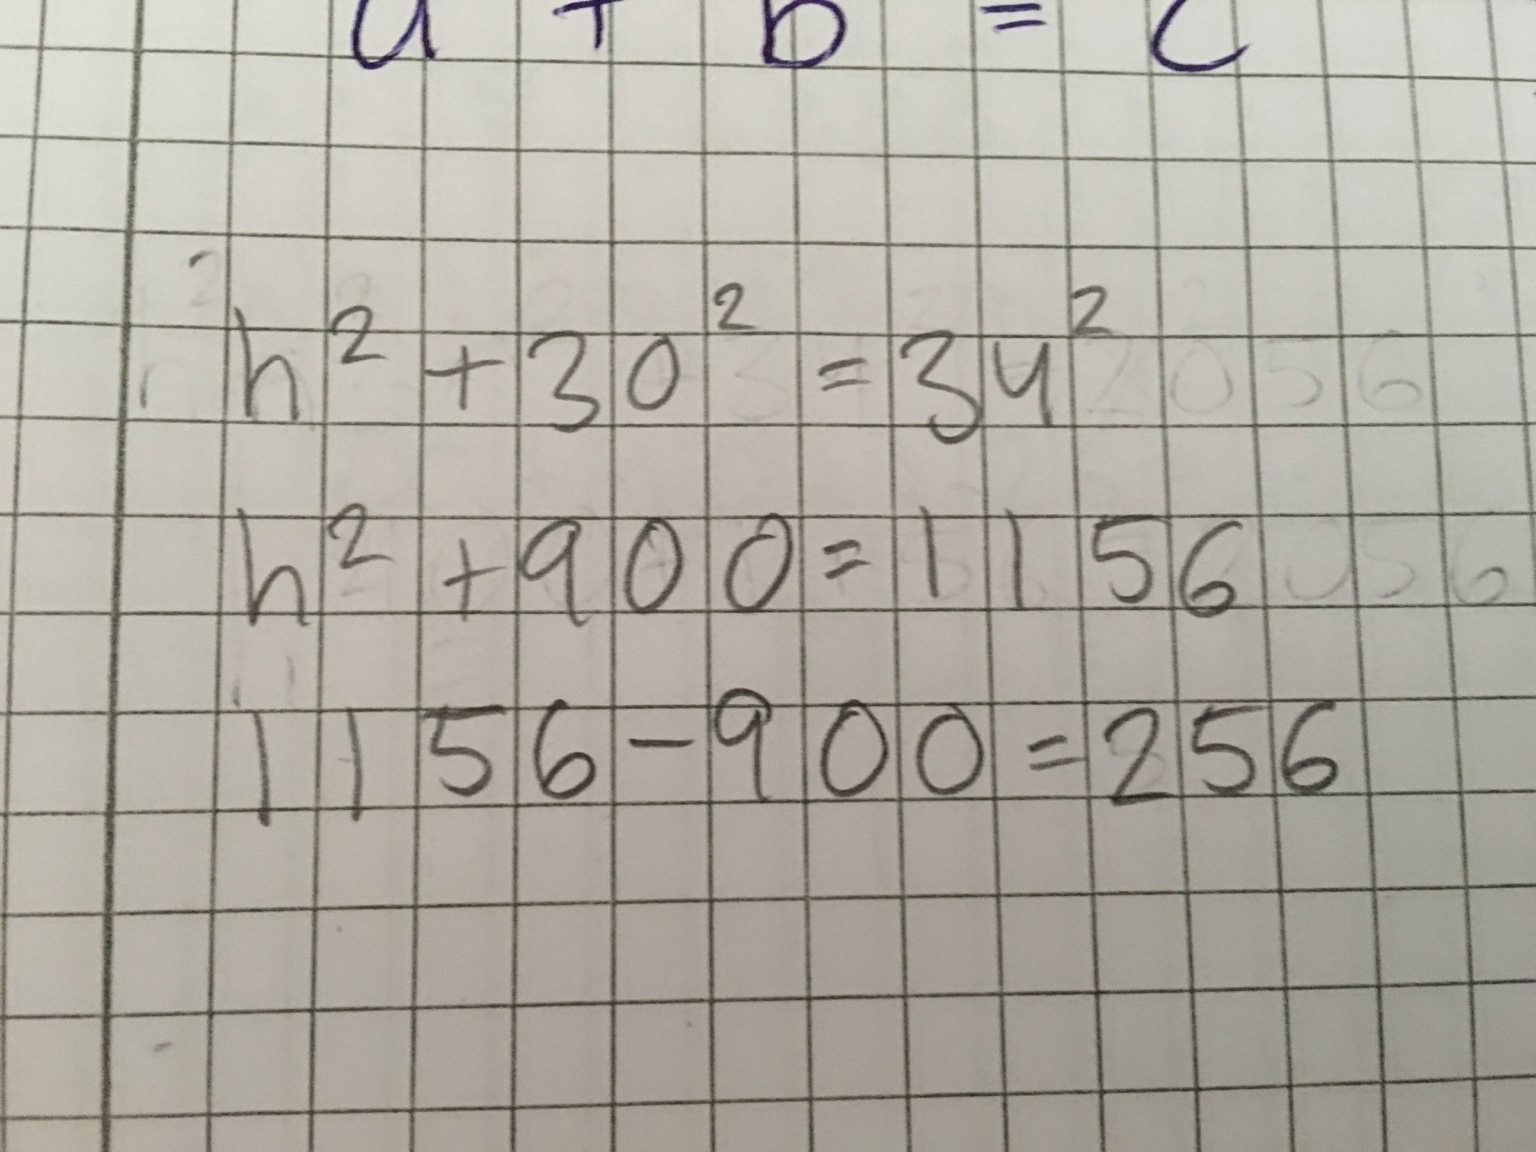 a + b = c
h² + 30² = 34²
h² + 900 = 1156
1156 - 900 = 256